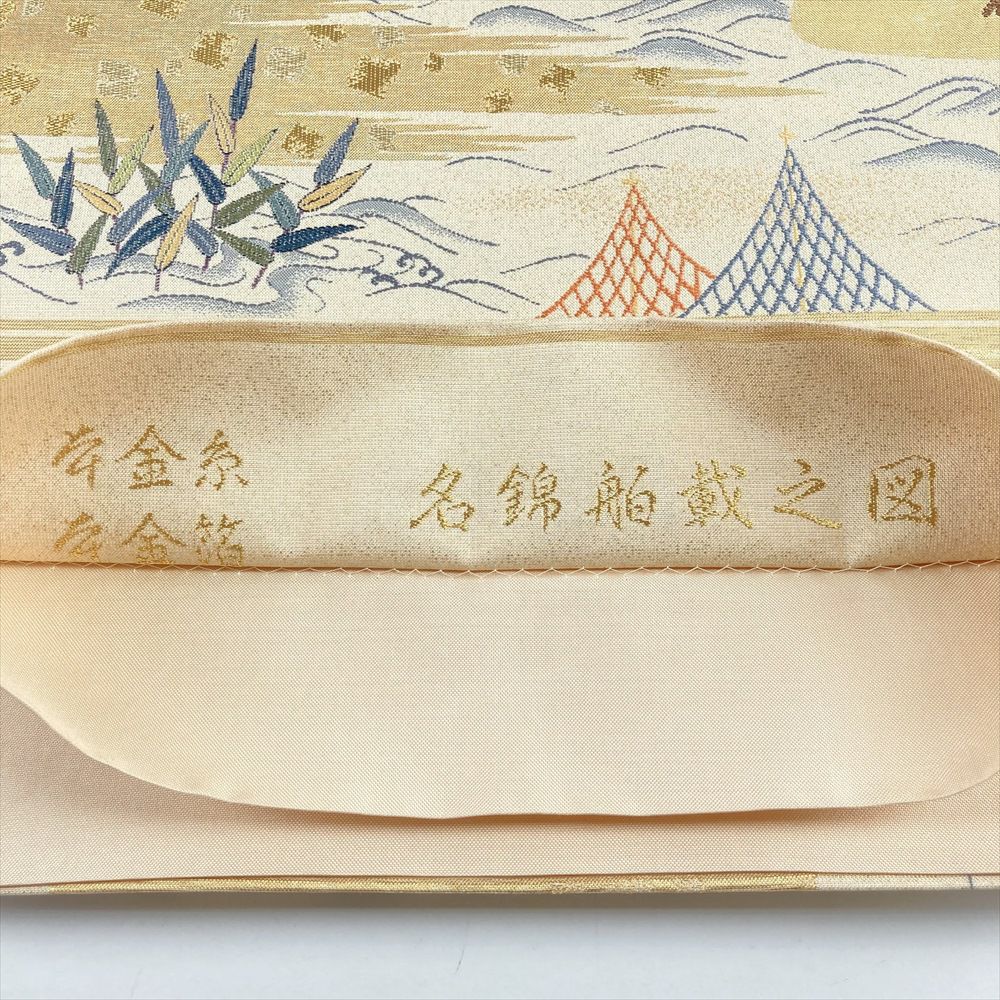 本金糸
本金箔
名錦舶載之図